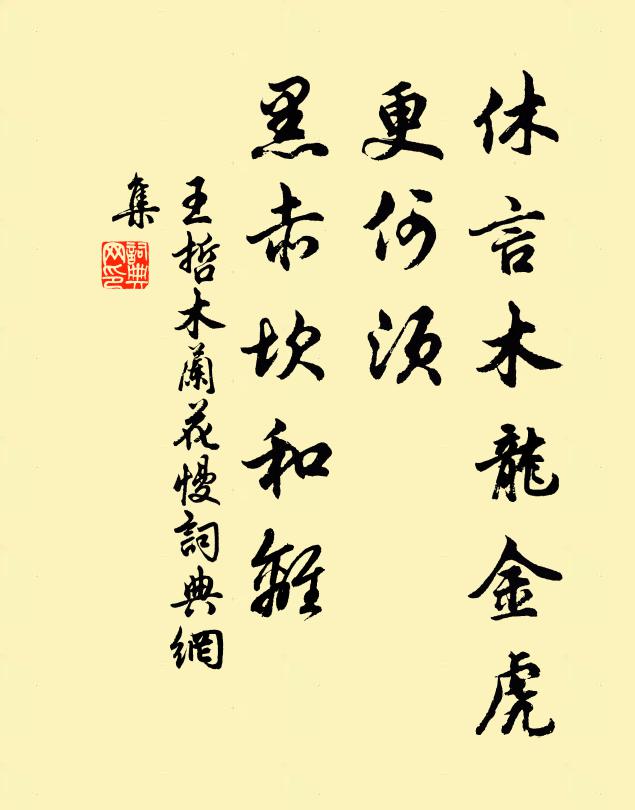 休言木龍金虎
更何須
黑赤坎和離
王哲木蘭花慢詞典網
集
詞典網印